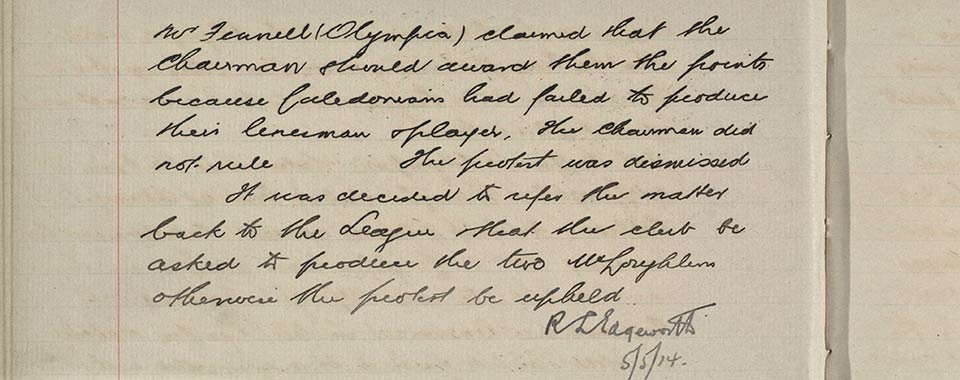 Mr Fennell (Olympia) claimed that the
Chairman should award them the points
because Caledonians had failed to produce
their linesman & player, The Chairman did
not rule The protest was dismissed
It was decided to refer the matter
back to the League that the club be
asked to produce the two McLoughlins
otherwise the protest be upheld
R L Edgeworth
5/5/14.